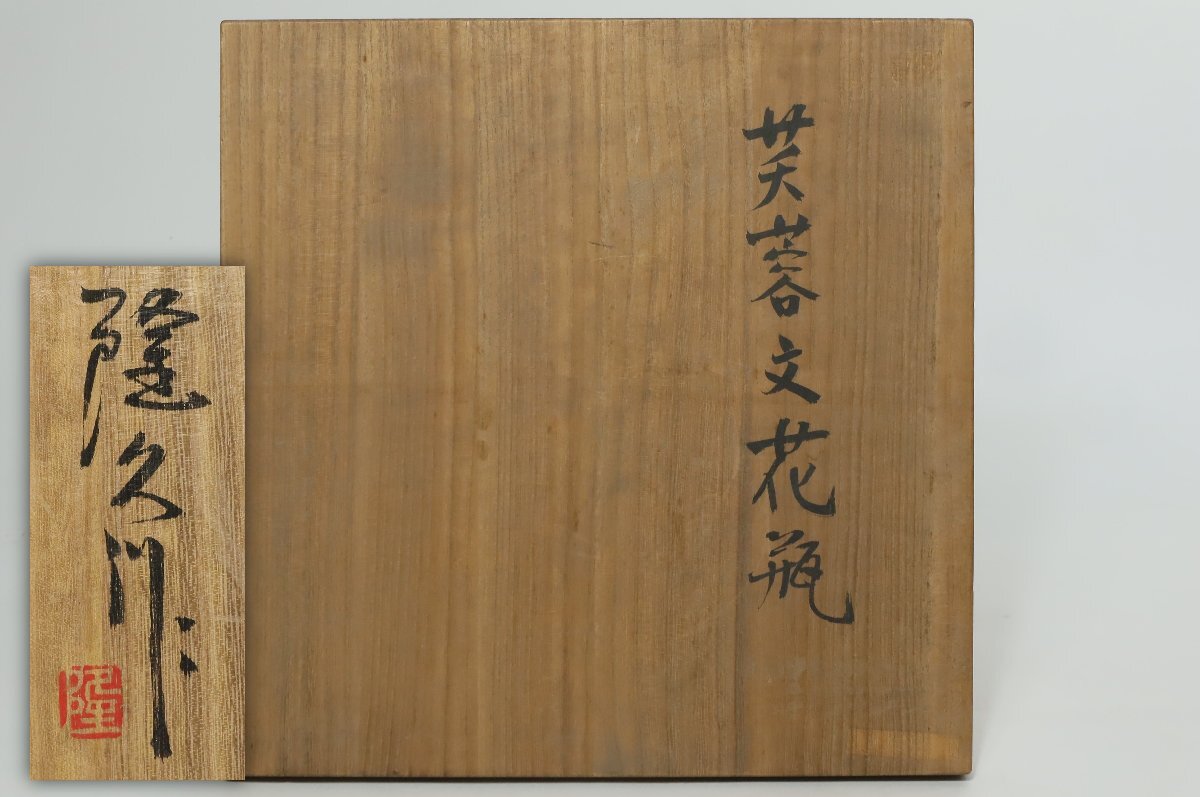 芙蓉文花瓶
隆久作
隆